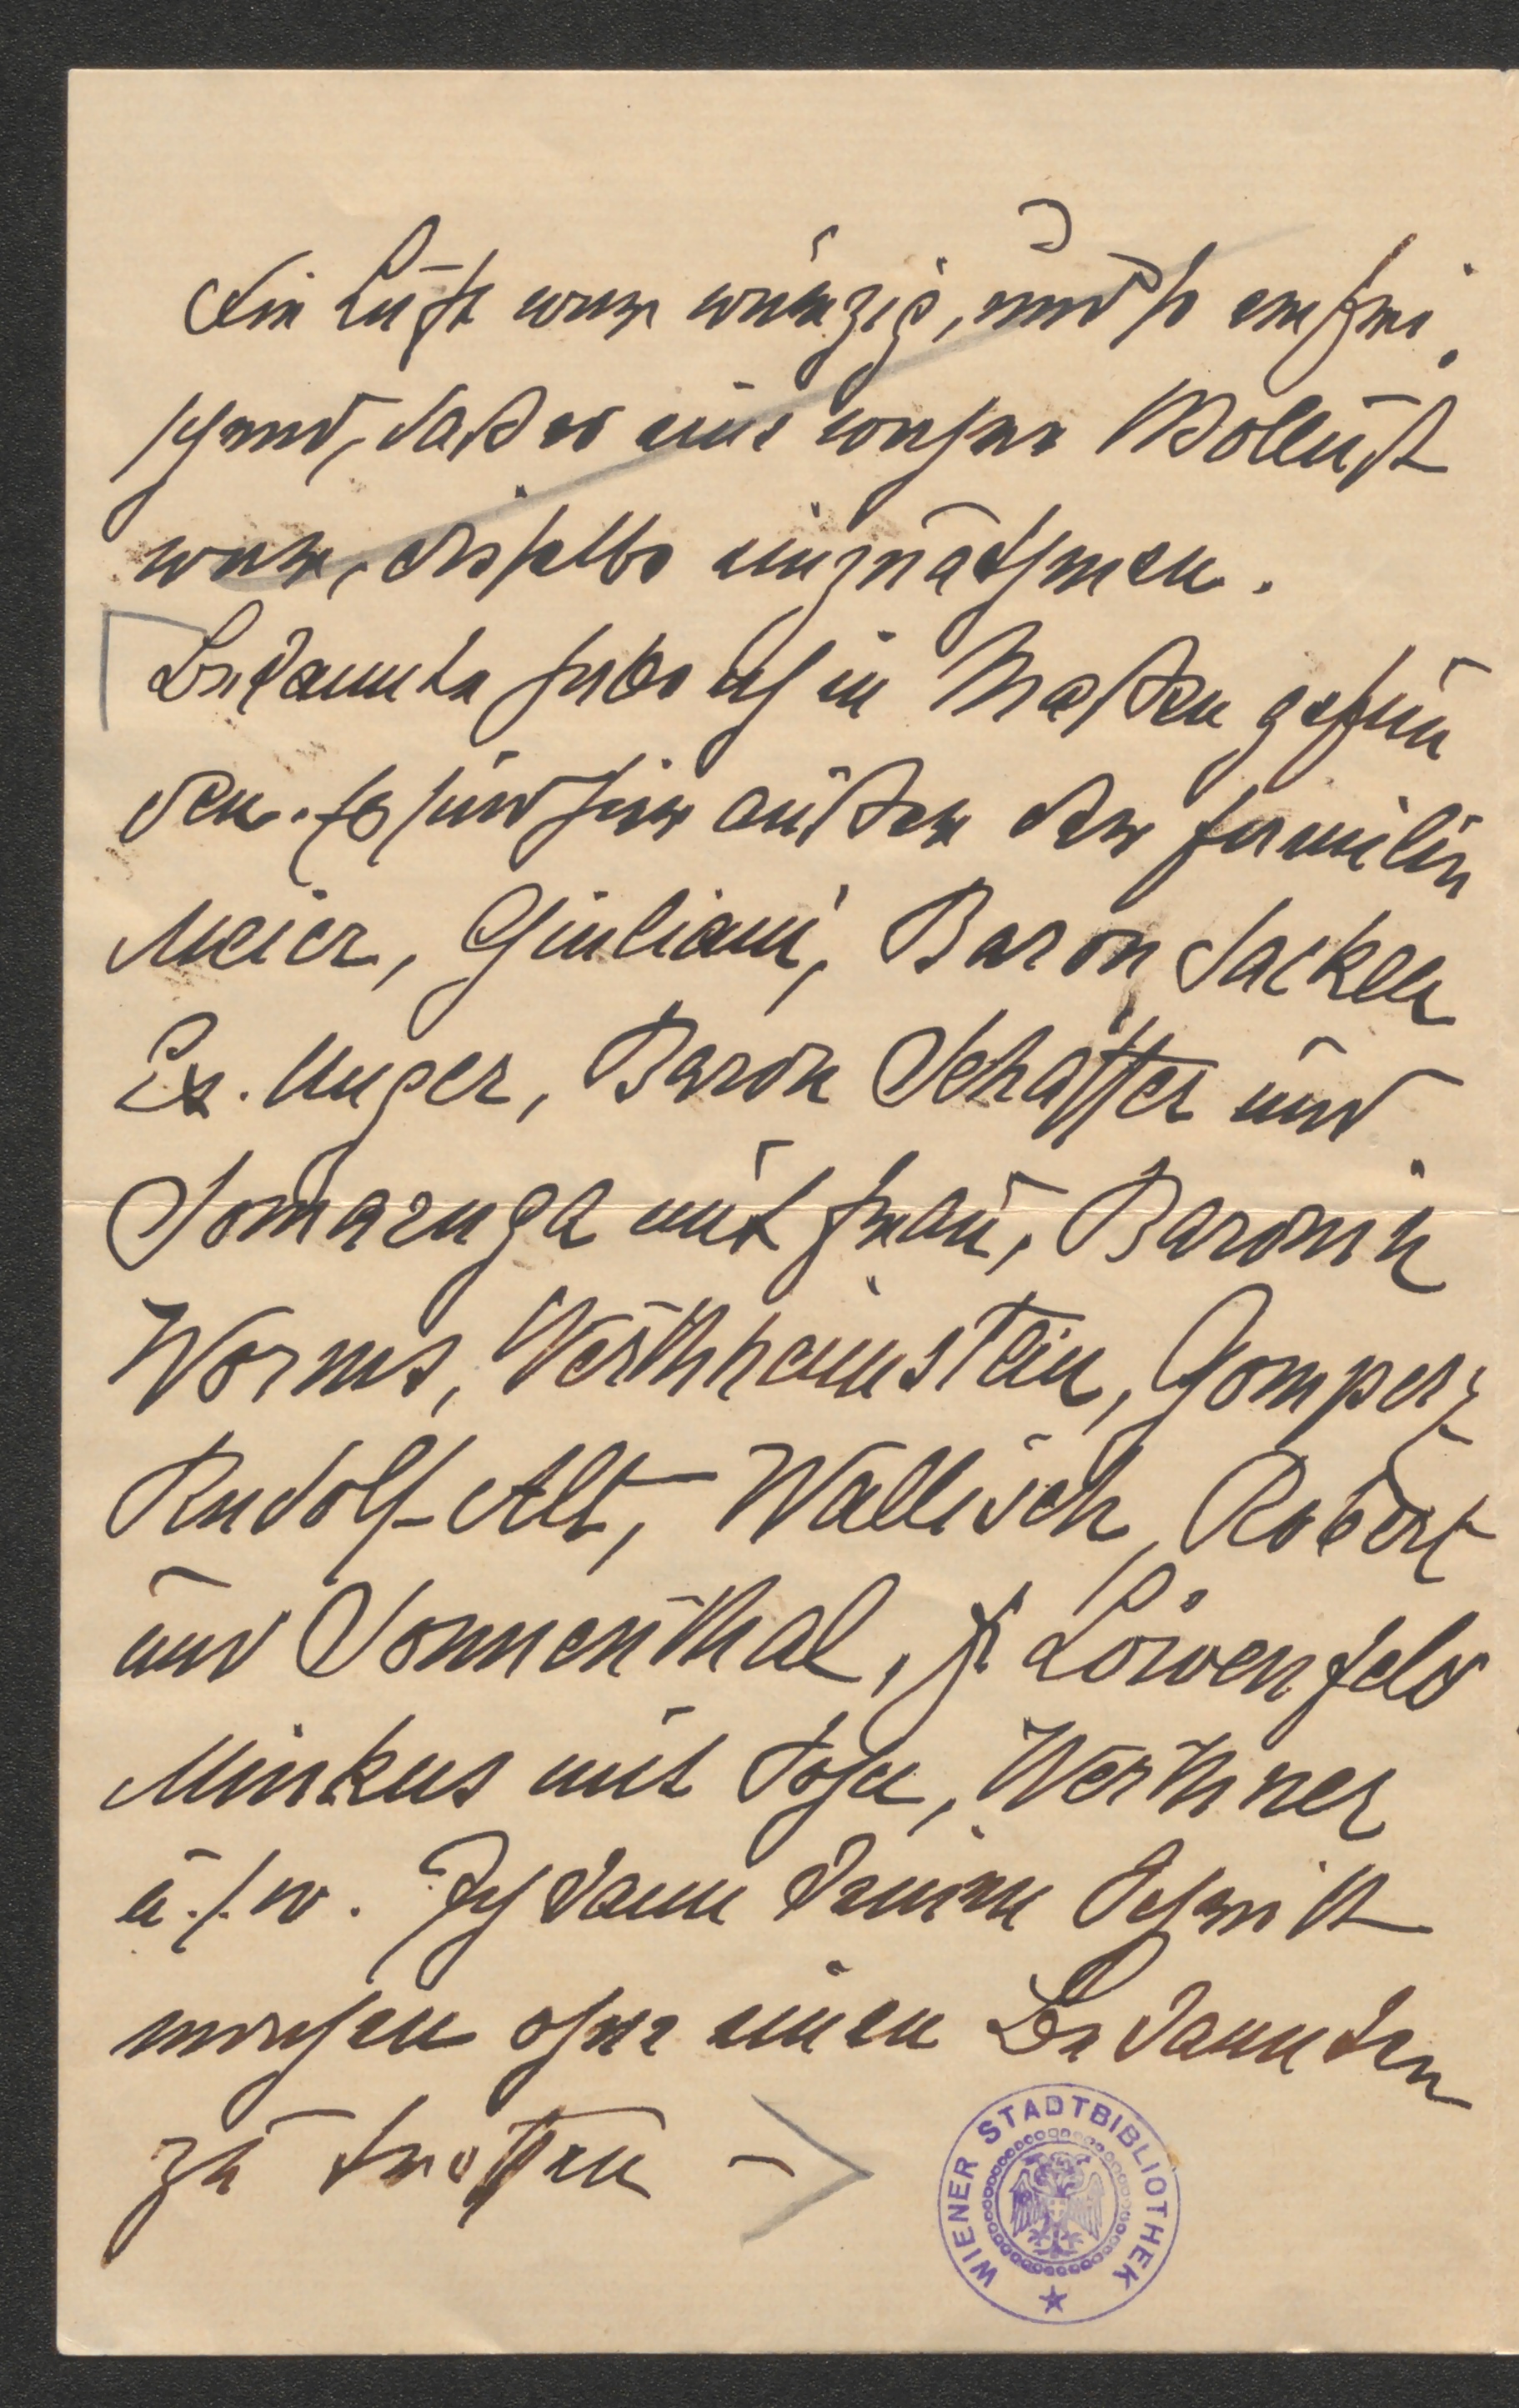 Die Luft war würzig, und so erfri
schend, daß es eine wahre Wollust
war, dieselbe einzuathmen.
Bekannte habe ich in Massen gefun
den. Es sind hier außer der Familie
Meier, Giuliani, Baron Sacken
Ex. Unger, Baron Schäffer und
Somaruga mit Frau, Baronin
Worms, Werthheimstein, Gomperz
Rudolf Alt, Wallisch, Robert
und Sonnenthal, Löwenfeld
Minkus mit Sohn, Werthner
u. s. w. Ich kann keinen Schritt
machen ohne einen Bekannten
zu treffen –
WIENER STADTBIBLIOTHEK